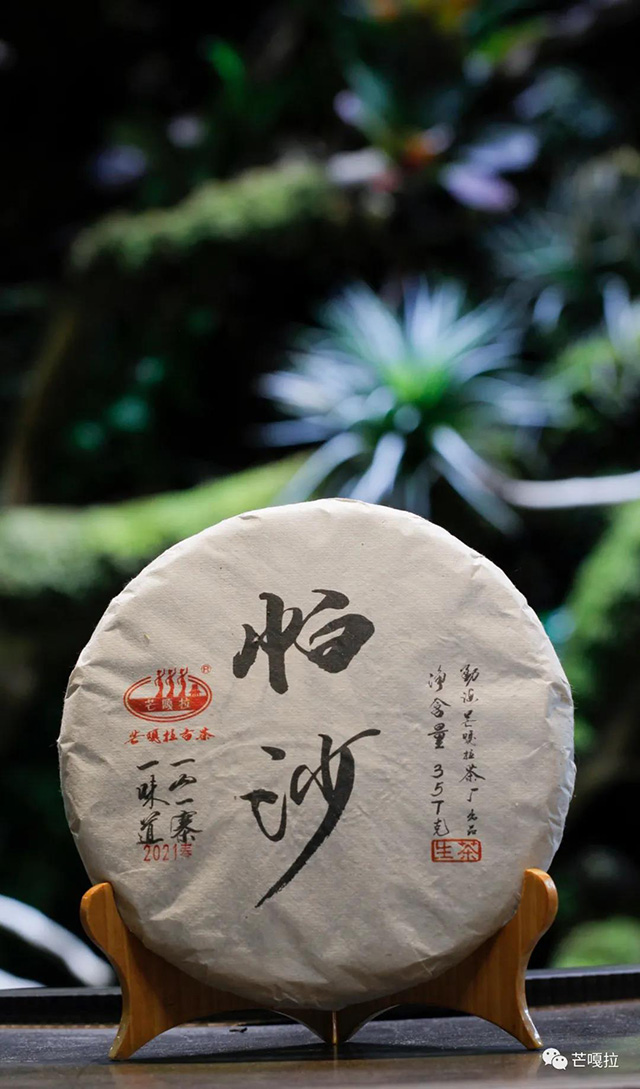 帕沙
®
芒嘎拉
芒嘎拉古茶
一山一寨
一味道
2021年
勐海芒嘎拉茶厂出品
净含量357克
生茶
芒嘎拉